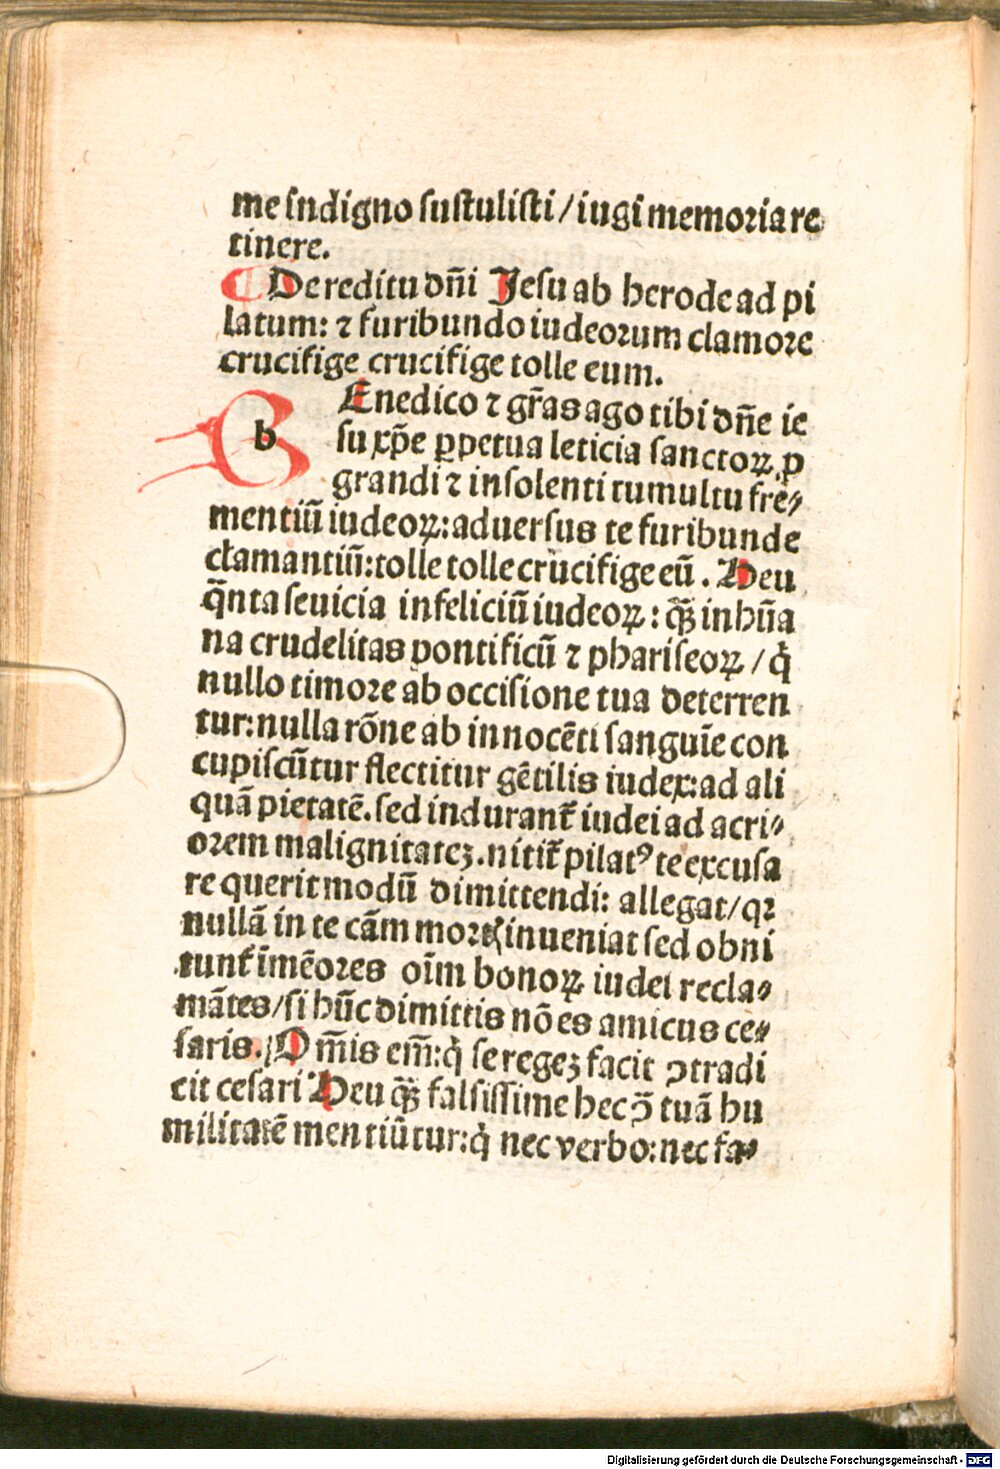 me indigno sustulisti / iugi memoria re
tinere.
De reditu dn̄i Jesu ab herode ad pi
latum: ⁊ furibundo iudeorum clamore
crucifige crucifige tolle eum.
b Enedico ⁊ gr̄as ago tibi dn̄e ie
su xp̄e ꝑpetua leticia sanctoꝝ ꝓ
grandi ⁊ insolenti tumultu frē⸗
mentiū iudeoꝝ: aduersus te furibunde
clamantiū: tolle tolle crucifige eū. Heu
q̄nta seuicia infeliciū iudeoꝝ: qꝫ̄ inhūa
na crudelitas pontificū ⁊ phariseoꝝ / q̇
nullo timore ab occisione tua deterren
tur: nulla rōne ab innocēti sanguīe con
cupiscūtur flectitur gētilis iudex: ad ali
quā pietatē. sed indurant᷑ iudei ad acri⸗
orem malignitateꝫ. nitit᷑ pilatꝰ te excusa
re querit modū dimittendi: allegat / qꝛ
nullā in te cām mortꝭ inueniat sed obni
tunt᷑ īmēores oīm bonoꝝ iudei recla⸗
mātes / si hūc dimittis nō es amicus ce⸗
saris. Om̄is em̄: q̇ se regeꝫ facit ꝯtradi
cit cesari Heu qꝫ̄ falsissime hec ꝯ̄ tuā hu
militatē mentiūtur: q̇ nec verbo: nec fa⸗
Digitalisierung gefördert durch die Deutsche Forschungsgemeinschaft - DFG